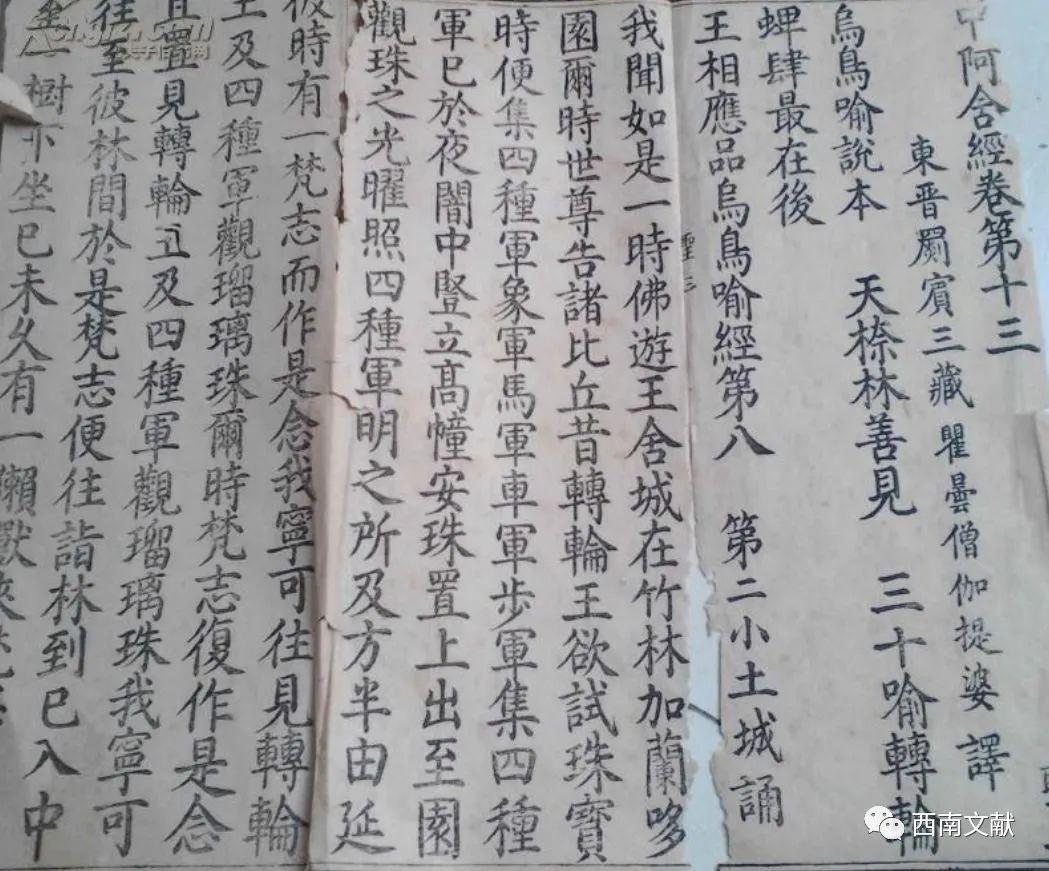 中阿含經卷第十三
東晋罽賓三藏瞿曇僧伽提婆譯
烏鳥喻說本 天㮈林善見 三十喻轉輪
蜱肆最在後
王相應品烏鳥喻經第八 第二小土城誦
我聞如是一時佛遊王舍城在竹林加蘭哆
園爾時世尊告諸比丘昔轉輪王欲試珠寶
時便集四種軍象軍馬軍車軍步軍集四種
軍已於夜闇中竪立高幢安珠置上出至園
觀珠之光曜照四種軍明之所及方半由延
彼時有一梵志而作是念我寧可往見轉輪
王及四種軍觀瑠璃珠爾時梵志復作是念
且置見轉輪王及四種軍觀瑠璃珠我寧可
往至彼林間於是梵志便往詣林到已入中
至一樹下坐已未久有一獺獸來
西南文献